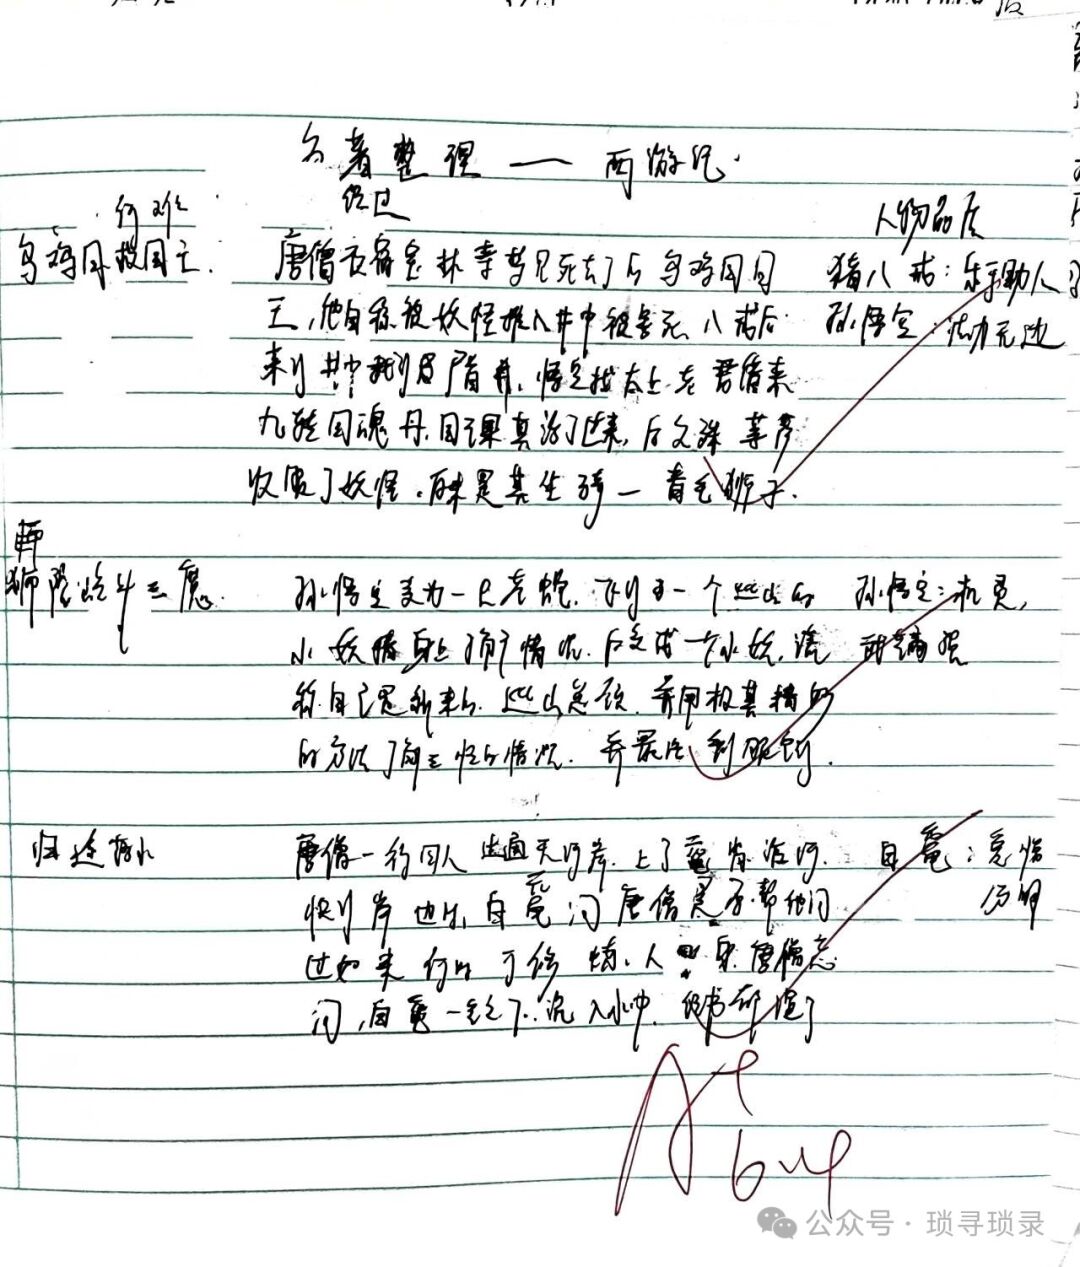 名著整理——西游记.
何难
经过
人物品质
乌鸡国救国王.
唐僧夜宿宝林寺梦见死去了的乌鸡国国
王,他自称被妖怪推入井中被害死,八戒后
来到井中找到尸首并,悟空找太上老君借来
九转回魂丹,国王果真活了过来,后文殊菩萨
收服了妖怪.原来是其坐骑一青毛狮子.
猪八戒:乐于助人
孙悟空:法力无边
狮陀岭斗三魔.
孙悟空变为一只苍蝇,飞到了一个巡山的
小妖身上了解了情况.后变成一个小妖,谎
称自己是新来的巡山总领,并用极其精明
的方法了解三怪的情况.并最后制服
孙悟空:机灵,
归途落水
唐僧一行四人 通天河岸.上了鼋背渡河.
快到岸边时,白鼋问唐僧是否帮他问
过如来何时可修炼人 唐僧忘
问,白鼋一气之下.沉入水中,经书都湿了
白鼋:恩怨
分明
A+
6.4
公众号·琐寻琐录